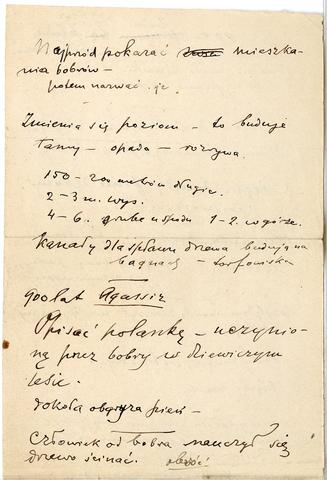 Najpród pokazać mieszka-
nia bobrów –
potem nazwać je.
Zmienia się poziom – to buduje
tamy – opada – rozrywa.
150 – 200 metrów długie.
2 – 3 m. wys.
4 – 6. grube u spodu 1 – 2. w górze.
Kanały dla spławu drzewa budują na
bagnach – torfowiska
900 lat Agassiz
Opisać polankę – uczynio-
ną przez bobry w dziewiczym
lesie.
dokoła obgryza pień –
Człowiek od bobra nauczył się
drzewo ścinać.